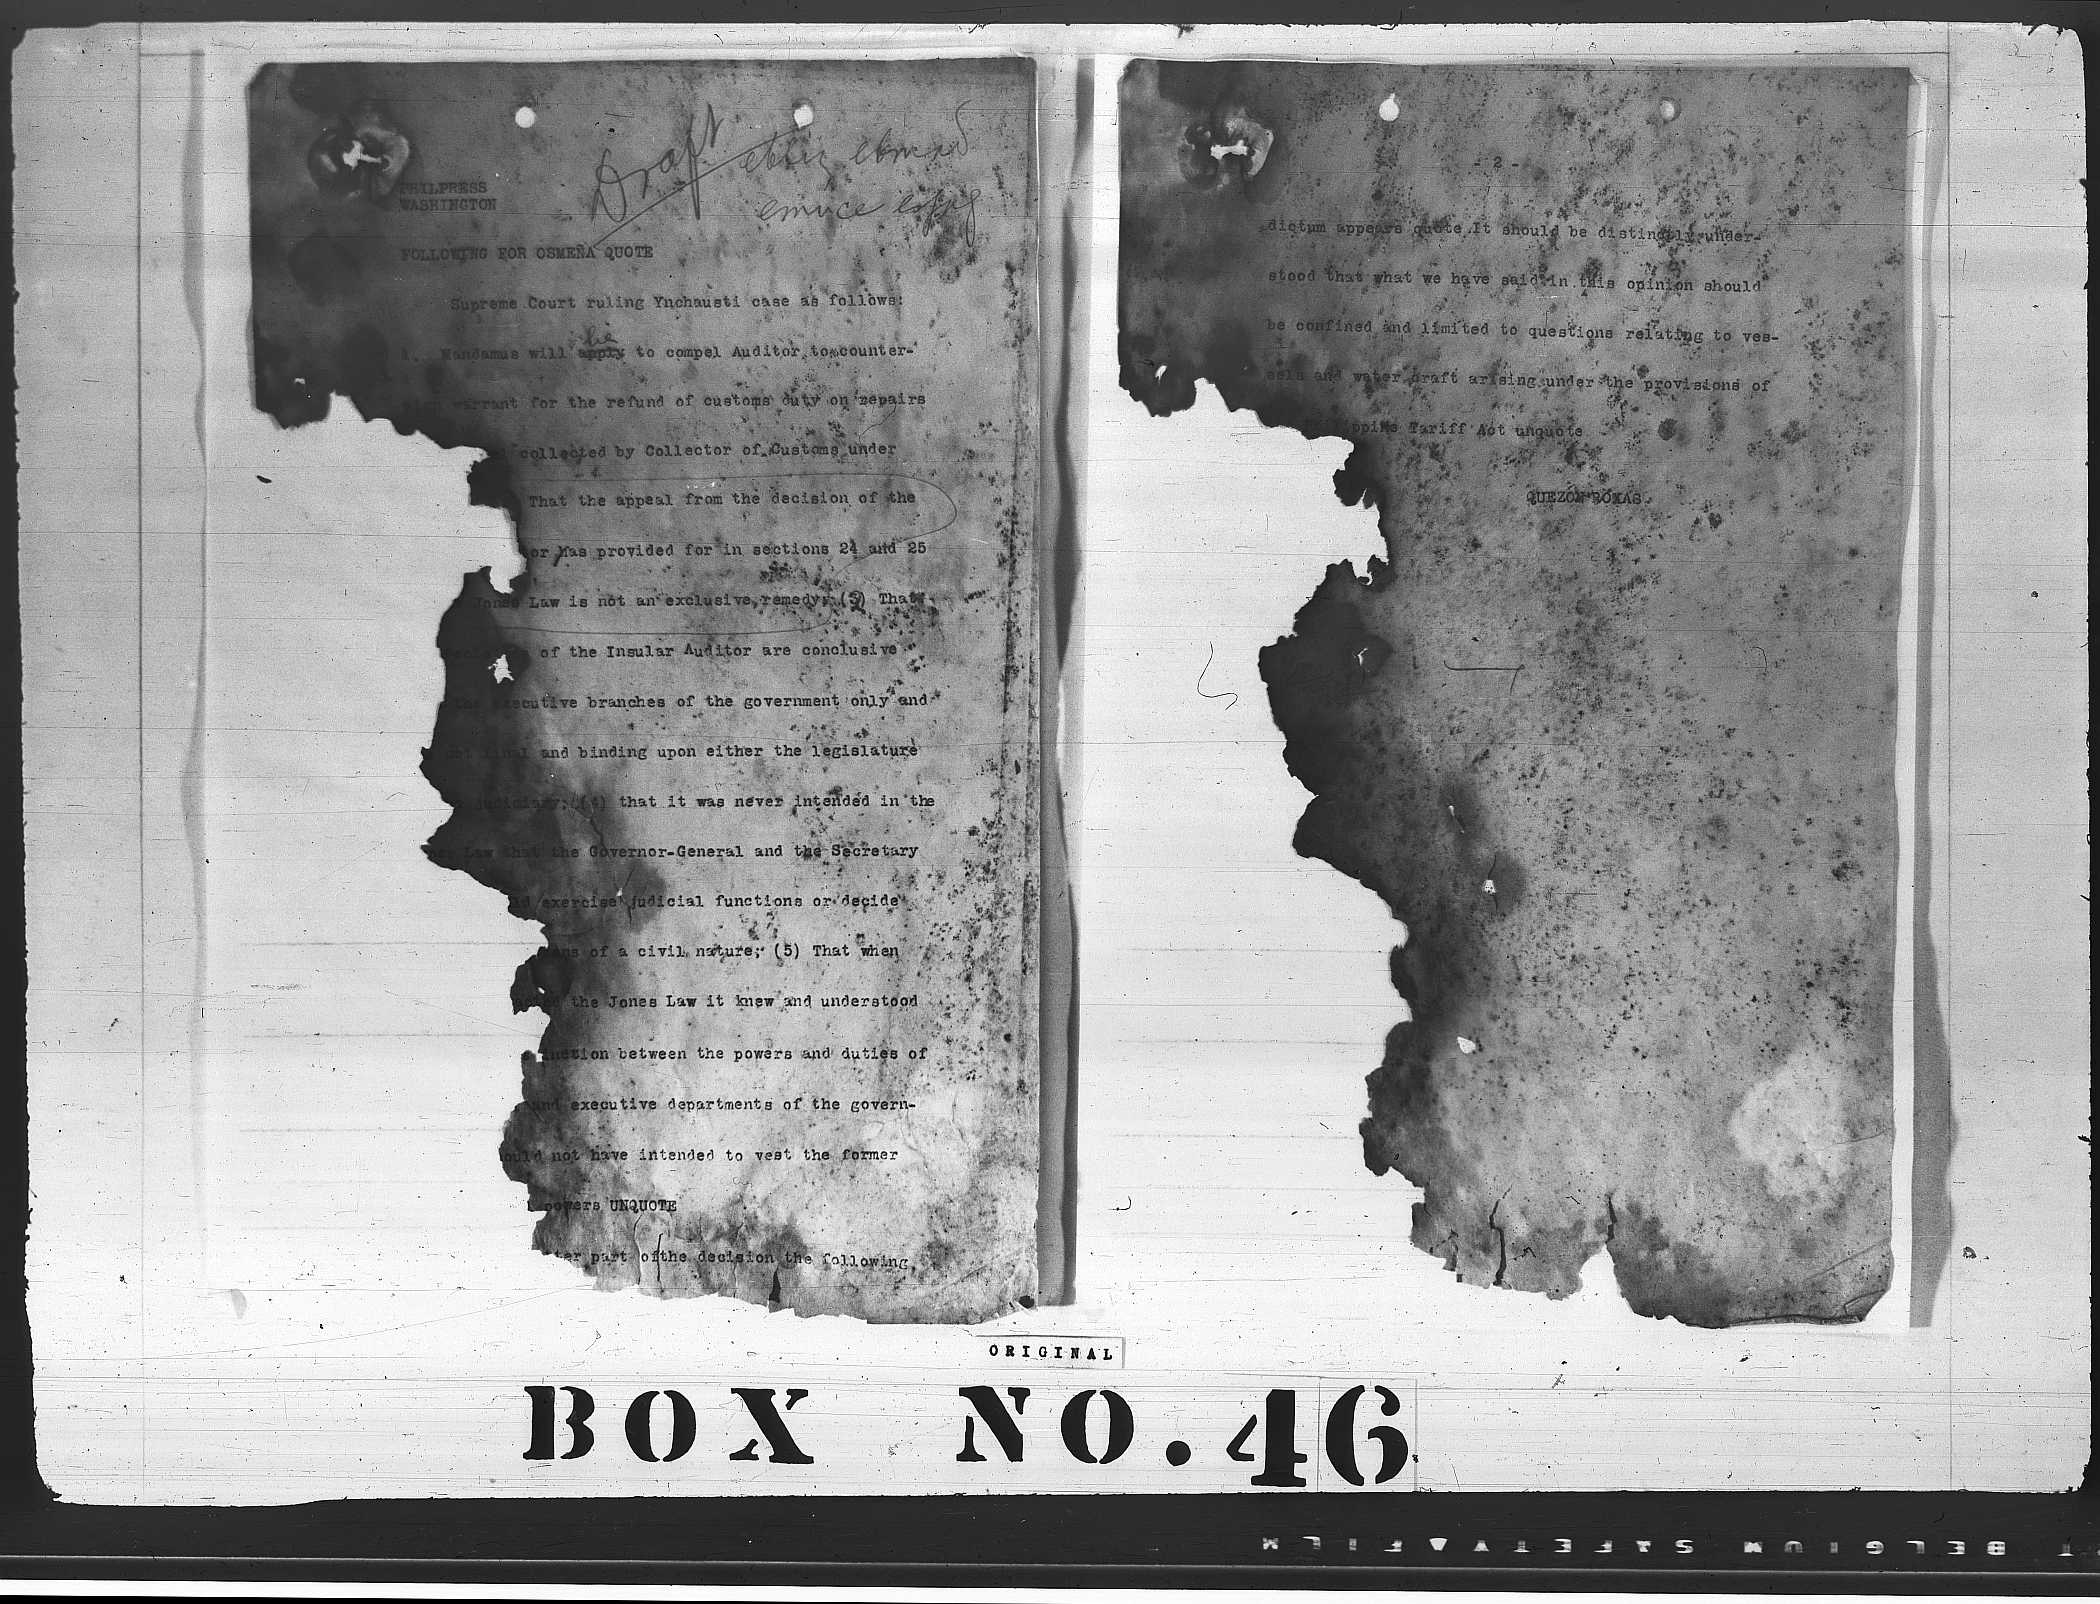 Draft
PHILPRESS
WASHINGTON
FOLLOWING FOR OSMEÑA QUOTE
Supreme Court ruling Ynchausti case as follows:
lie
1. Mandamus will apply to compel Auditor to counter-
warrant for the refund of customs duty on repairs
collected by Collector of Customs under
That the appeal from the decision of the
or has provided for in sections 24 and 25
Jones Law is not an exclusive remedy; (3) That
of the Insular Auditor are conclusive
the executive branches of the government only and
final and binding upon either the legislature
judiciary; (4) that it was never intended in the
Law that the Governor-General and the Secretary
ld exercise judicial functions or decide
ons of a civil nature; (5) That when
the Jones Law it knew and understood
inction between the powers and duties of
and executive departments of the govern-
ould not have intended to vest the former
powers UNQUOTE
ter part ofthe decision the following
- 2 -
dictum appears quote It should be distinctly under-
stood that what we have said in this opinion should
be confined and limited to questions relating to ves-
sels and water craft arising under the provisions of
Philippine Tariff Act unquote
QUEZON-ROXAS.
ORIGINAL
BOX NO. 46
BELGIUM SAFETY FILM